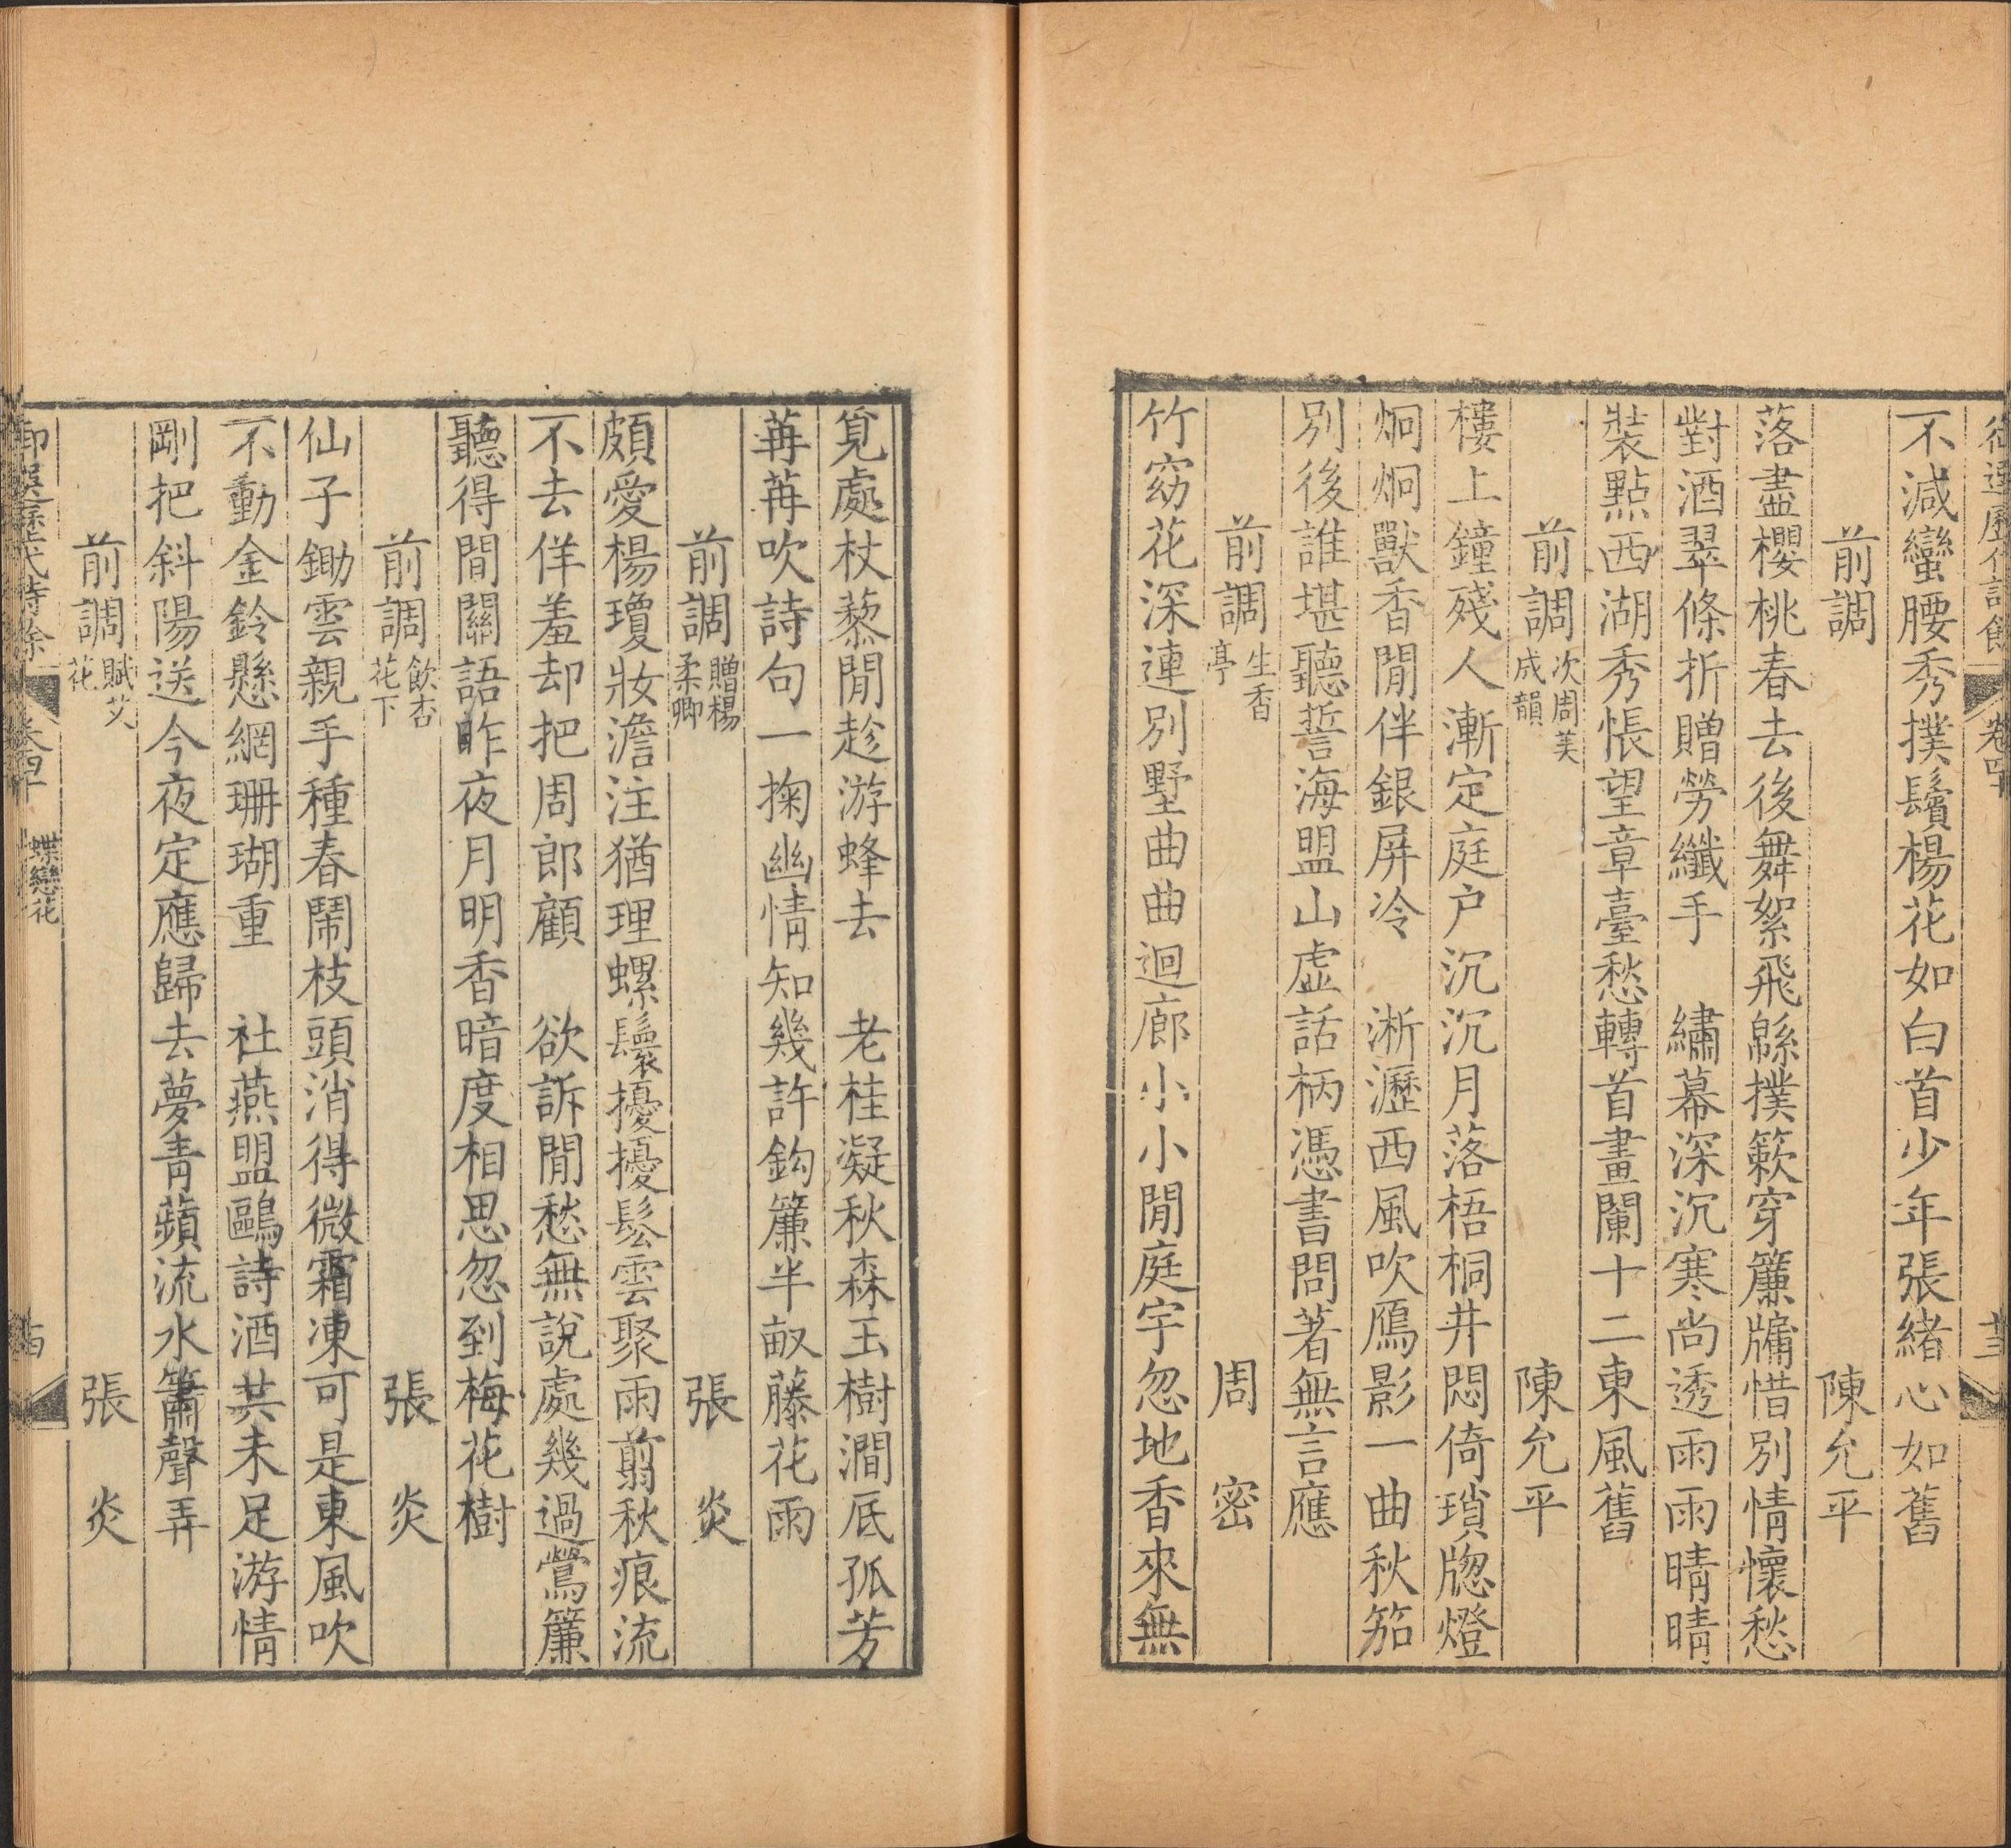 御選歷代詩餘 卷四十 廿三
不減蠻腰秀撲鬢楊花如白首少年張緒心如舊
前調 陳允平
落盡櫻桃春去後舞絮飛緜撲簌穿簾牖惜別情懷愁
對酒翠條折贈勞纖手 繡幕深沉寒尚透雨雨晴晴
裝點西湖秀悵望章臺愁轉首畫闌十二東風舊
前調 次周美成韻 陳允平
樓上鐘殘人漸定庭户沉沉月落梧桐井悶倚瑣牕燈
炯炯獸香閒伴銀屏冷 淅瀝西風吹鴈影一曲秋笳
別後誰堪聽誓海盟山虛話柄憑書問著無言應
前調 生香亭 周密
竹窈花深連別墅曲曲迴廊小小閒庭宇忽地香來無
覓處杖藜閒趁游蜂去 老桂凝秋森玉樹澗底孤芳
苒苒吹詩句一掬幽情知幾許鈎簾半畝藤花雨
前調 贈楊柔卿 張炎
頗愛楊瓊妝澹注猶理螺鬟擾擾鬆雲聚雨翦秋痕流
不去佯羞却把周郎顧 欲訴閒愁無說處幾過鶯簾
聽得間關語昨夜月明香暗度相思忽到梅花樹
前調 飲杏花下 張炎
仙子鋤雲親手種春鬧枝頭消得微霜凍可是東風吹
不動金鈴懸網珊瑚重 社燕盟鷗詩酒共未足游情
剛把斜陽送今夜定應歸去夢青蘋流水簫聲弄
前調 賦艾花 張炎
御選歷代詩餘 卷四十 蝶戀花